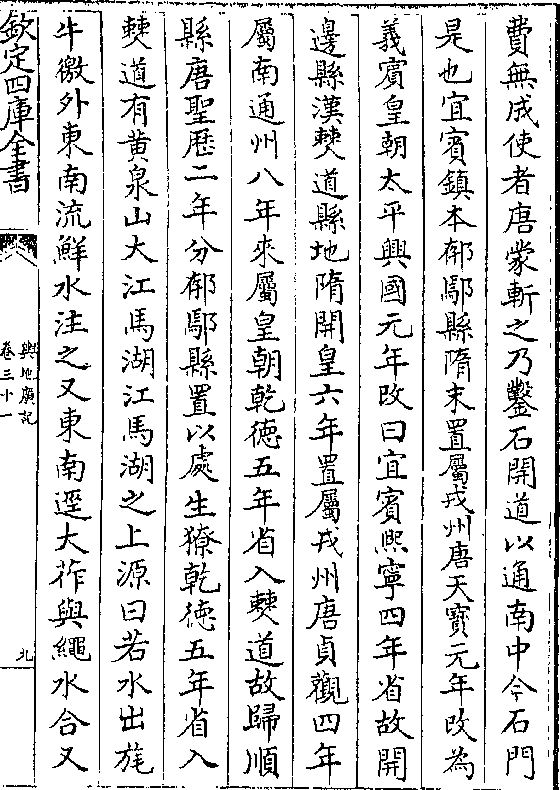 費無成使者唐蒙斬之乃鑿石開道以通南中今石門
是也宜賓鎮本郁鄢縣隋末置屬戎州唐天寶元年改為
義賓皇朝太平興國元年改曰宜賓熙寧四年省故開
邊縣漢僰道縣地隋開皇六年置屬戎州唐貞觀四年
屬南通州八年來屬皇朝乾德五年省入僰道故歸順
縣唐聖歷二年分郁鄢縣置以處生獠乾德五年省入
僰道有黃泉山大江馬湖江馬湖之上源曰若水出旄
牛徼外東南流鮮水注之又東南逕大莋與繩水合又
欽定四庫全書
輿地廣記
卷三十一
北